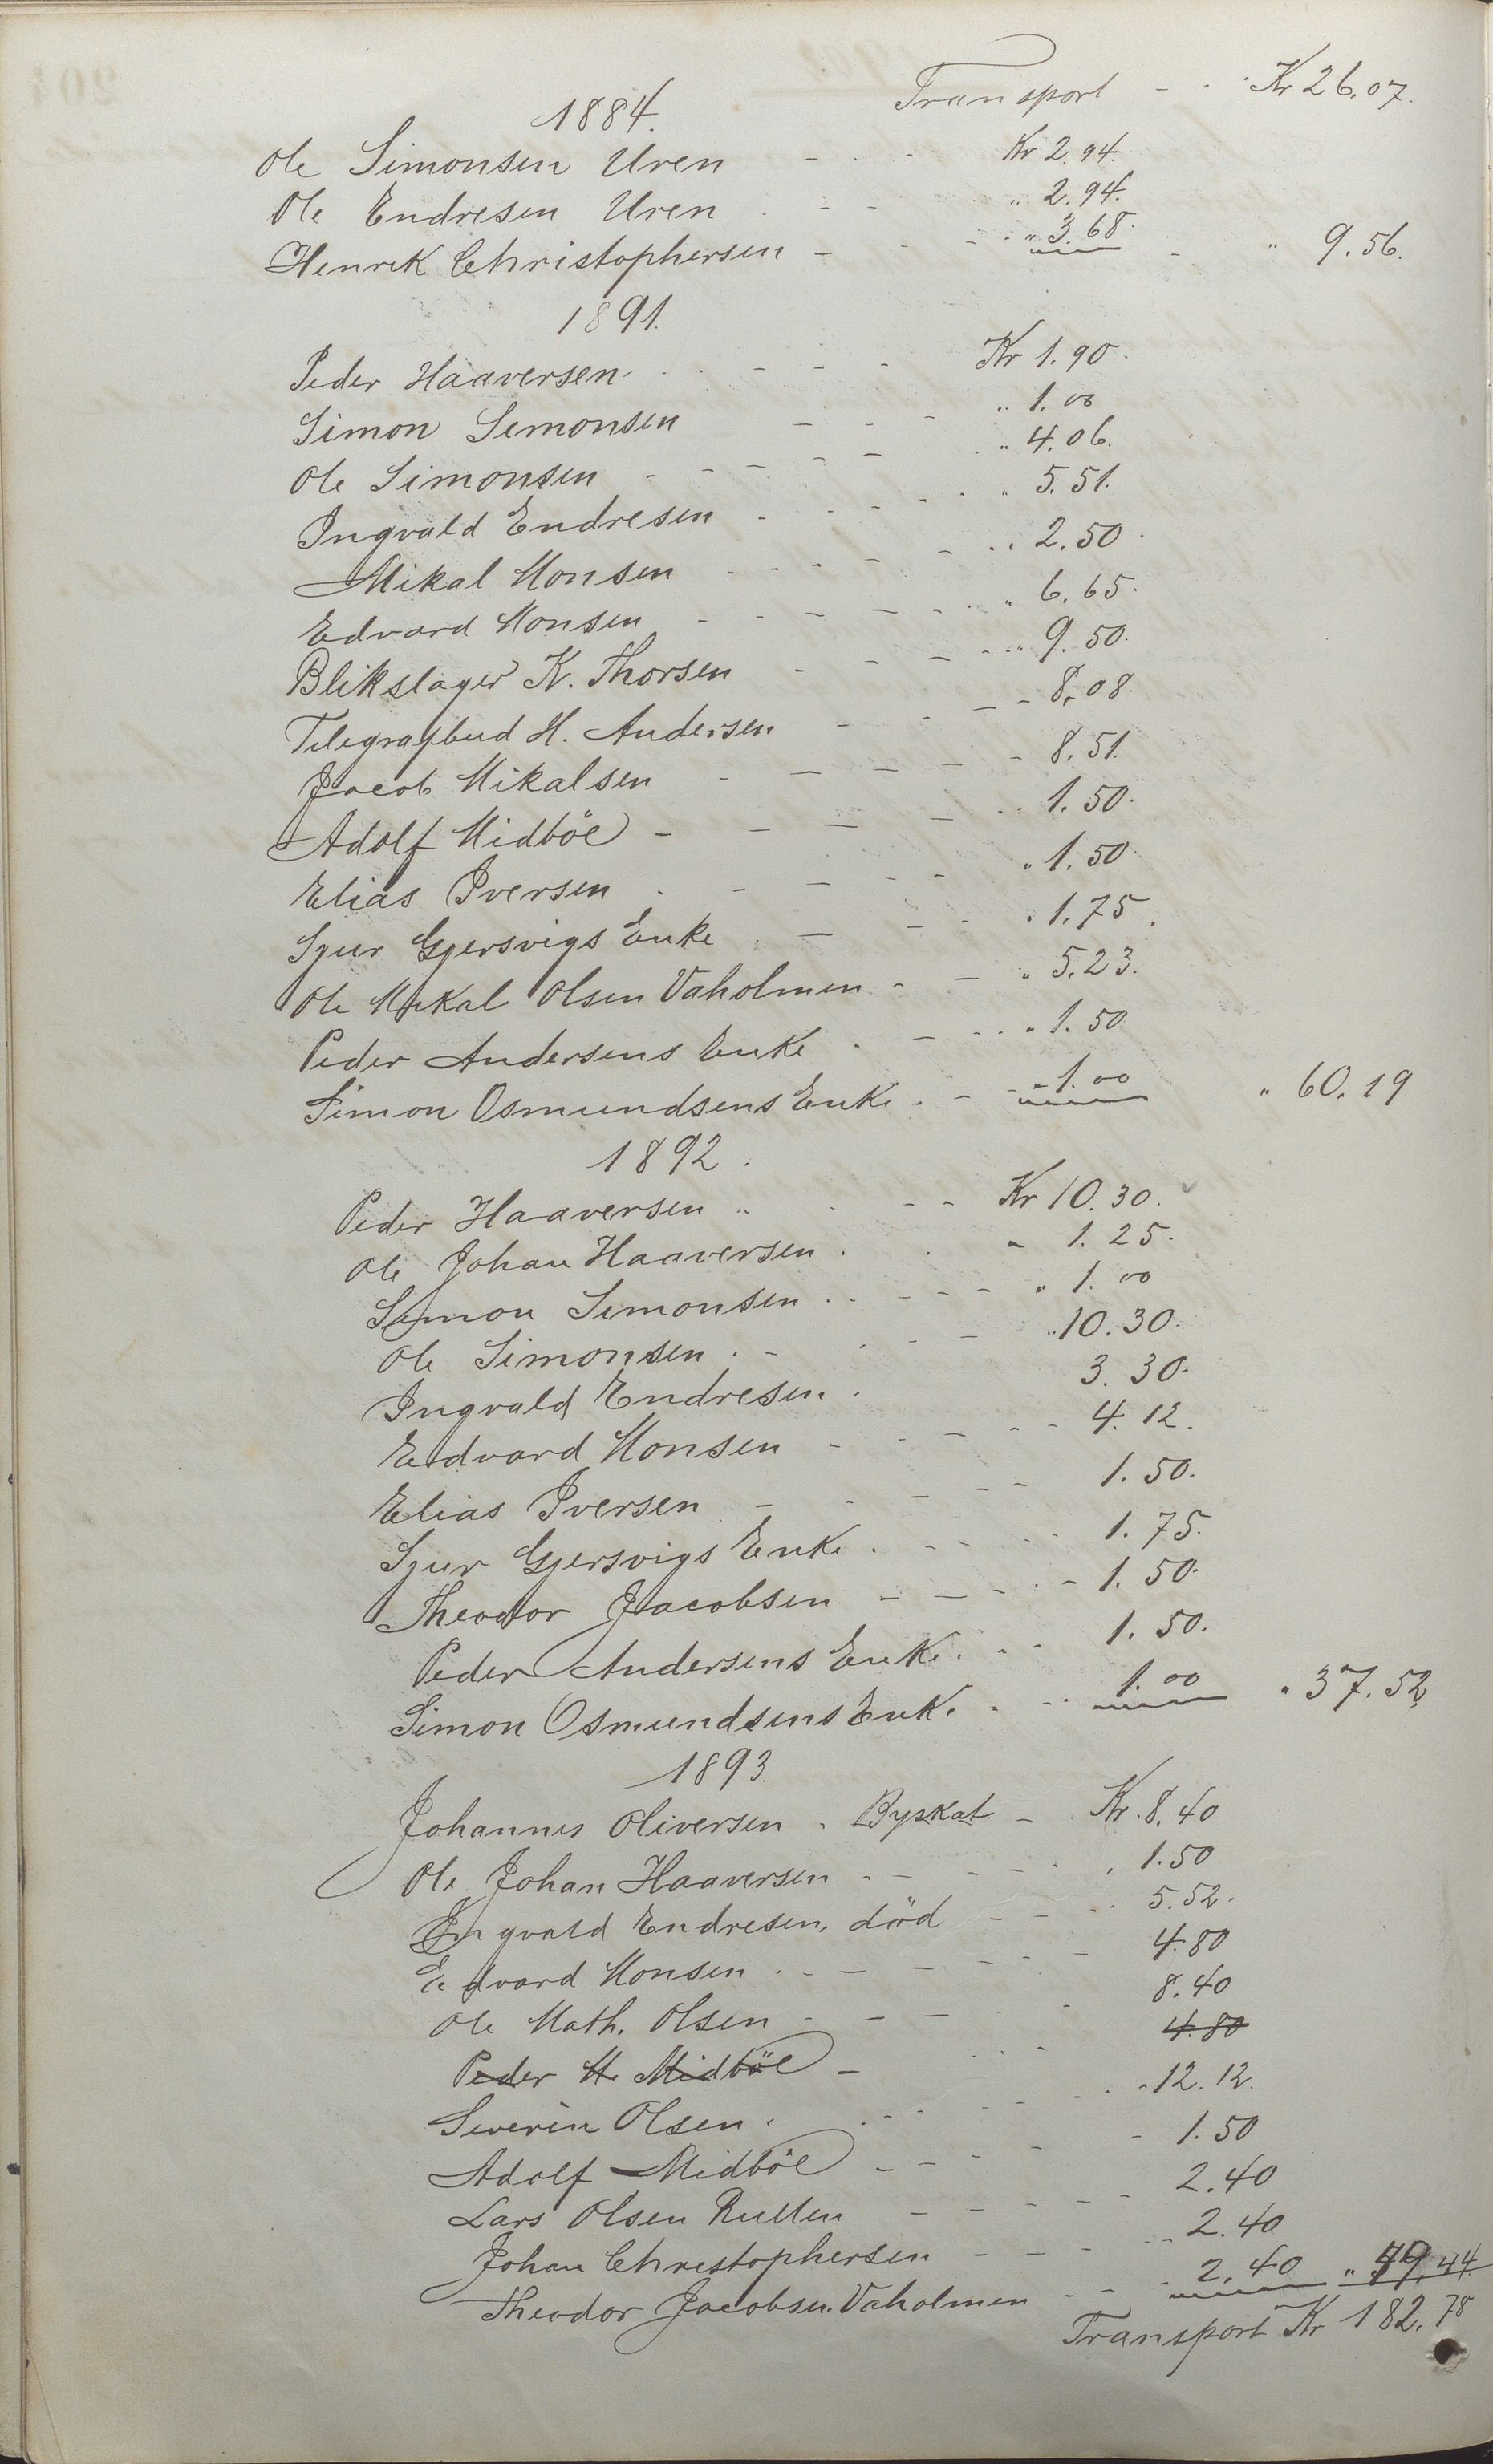 Transport - - Kr 26.07.
1884.
Ole Simonsen Uren - - - Kr 2.94.
Ole Endresen Uren - - - " 2.94.
Henrik Christophersen - - - " 3.68. - " 9.56.
1891.
Peder Haaversen - - - Kr 1.90.
Simon Simonsen - - - " 1.00
Ole Simonsen - - - " 4.06.
Ingvald Endresen - - - " 5.51.
Mikal Monsen - - - " 2.50
Edvard Monsen - - - " 6.65.
Blikslager K. Thorsen - - - " 9.50.
Telegrafbud H. Andersen - - - 8.08.
Jacob Mikalsen - - - 8.51.
Adolf Midböe - - - 1.50.
Elias Iversen - - - " 1.50.
Sjur Gjersvigs Enke - - - " 1.75.
Ole Mikal Olsen Vaholmen - - " 5.23.
Peder Andersens Enke - - - " 1.50
Simon Osmundsens Enke - - " 1.00 " 60.19
1892.
Peder Haaversen - - - Kr 10.30.
Ole Johan Haaversen - - " 1.25.
Simon Simonsen - - - " 1.00
Ole Simonsen - - - " 10.30.
Ingvald Endresen. 3.30.
Edvard Monsen - - - 4.12.
Elias Iversen - - - 1.50.
Sjur Gjersvigs Enke - - - 1.75.
Theodor Jacobsen - - - 1.50.
Peder Andersens Enke - - 1.50.
Simon Osmundsens Enke - - 1.00 " 37.52
1893.
Johannes Oliversen. Byskat - Kr. 8.40
Ole Johan Haaversen - - - 1.50
Ingvald Endresen, död - - - 5.52.
Edvard Monsen - - - 4.80
Ole Math. Olsen - - - 8.40
Peder M. Midböe - - - 4.80
Severin Olsen - - - 12.12.
Adolf Midböe - - - 1.50
Lars Olsen Rullen - - - 2.40
Johan Christophersen - - - 2.40
Theodor Jacobsen Vaholmen - - - 2.40 " 49.44
Transport Kr 182.78